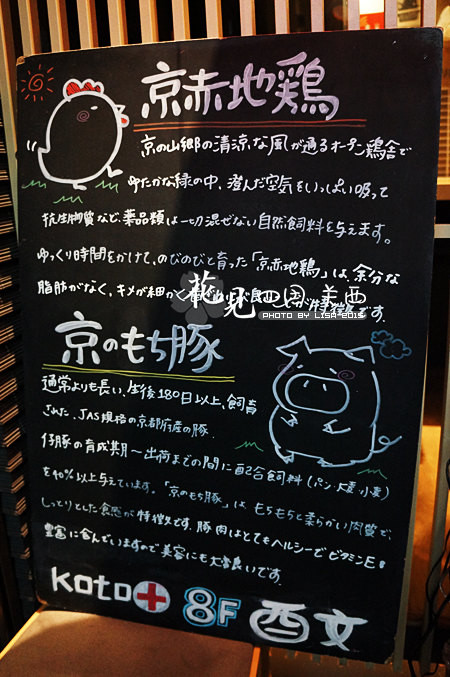 京赤地鶏
京の山郷の清涼な風が通るオープン鶏舎で
ゆたかな緑の中、澄んだ空気をいっぱい吸って
抗生物質など、薬品類は一切混ぜない自然飼料を与えます。
ゆっくり時間をかけて、のびのびと育った「京赤地鶏」は余分な
脂肪がなく、キメが細かく
特徴です.
花見四国美西
PHOTO BY LISA-2015
京のもち豚
通常よりも長い、生後180日以上、飼育
された、JAS規格の京都府産の豚.
仔豚の育成期〜出荷までの間に配合飼料(パン・大麦・小麦)
を40%以上与えています。「京のもち豚」は もちもちと柔らかい肉質で、
しっとりとした食感が特徴です. 豚肉はとてもヘルシーで ビタミンE
豊富に含んでいますので美容にも大変良いです.
koto+ 8F 酉文